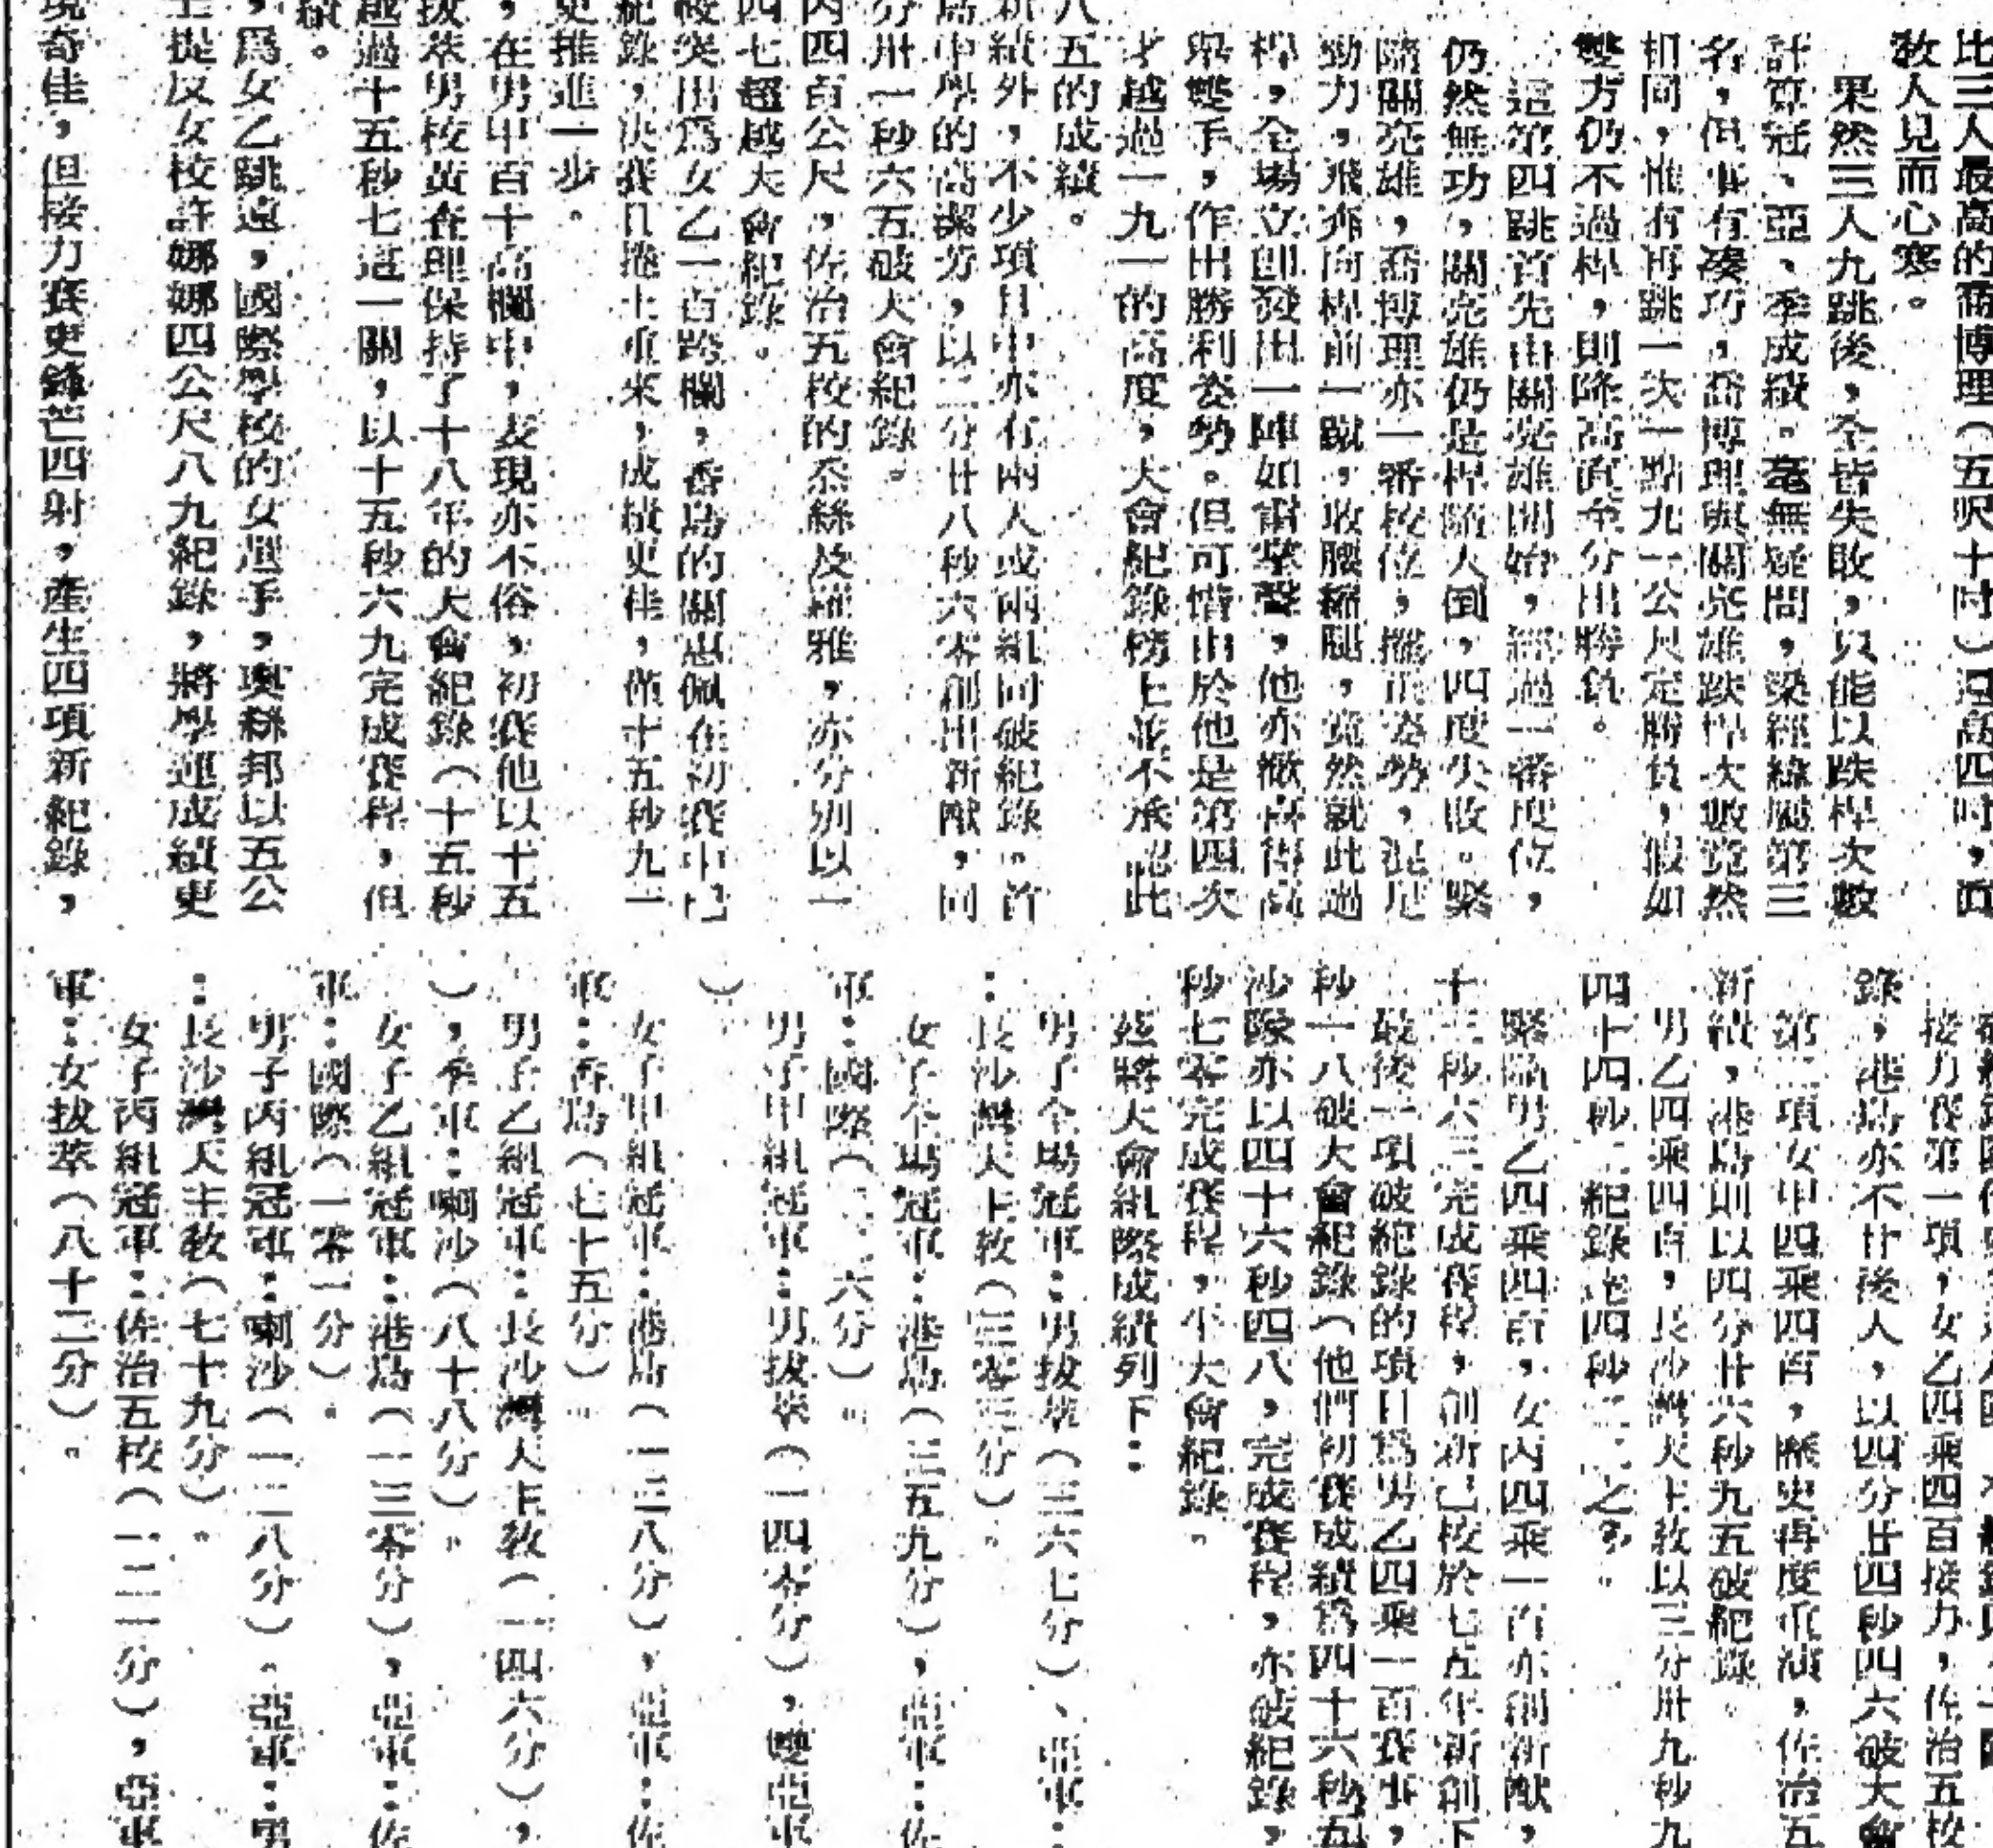 比三人最高的喬博理（五呎十吋）還高四吋，真
教人見而心寒。
果然三人九跳後，全皆失敗，只能以跌桿次數
計算冠、亞、季成績。毫無疑問，梁經緯屬第三
名，但事有湊巧，喬博理與關亮雄跌桿次數竟然
相同，惟有再跳一次一點九一公尺定勝負，假如
雙方仍不過桿，則降高直至分出勝負。
這第四跳首先由關亮雄開始，經過一番度位，
仍然無功，關亮雄仍是桿隨人倒，四度失敗。緊
隨關亮雄，喬博理亦一番校位，擺正姿勢，混足
勁力，飛奔向桿前一蹴，收腰縮腿，竟然就此過
桿，全場立即發出一陣如雷掌聲，他亦微高得高
舉雙手，作出勝利姿勢。但可惜由於他是第四次
才越過一九一的高度，大會紀錄榜上並不承認此
八五的成績。
新績外，不少項目中亦有兩人或兩組同破紀錄。首
島中學的高潔芳，以二分廿八秒六零創出新猷，同
分卅一秒六五破大會紀錄。
丙四百公尺，佐治五校的 絲及羅雅，亦分別以一
四七超越大會紀錄。
較突出爲女乙一百跨欄，香島的關惠佩在初賽中已
紀錄，決賽日捲土重來，成績更佳，僅十五秒九一
更推進一步。
，在男甲百十高欄中，表現亦不俗，初賽他以十五
拔萃男校黃查理保持了十八年的大會紀錄（十五秒
越過十五秒七這一關，以十五秒六九完成賽程，但
績。
，爲女乙跳遠，國際學校的女選手，奧絲邦以五公
士提反女校許娜娜四公尺八九紀錄，將學運成績更
現奇佳，但接力賽更鋒芒四射，產生四項新紀錄，
接力賽第一項，女乙四乘四百接力，佐治五校
錄，港島亦不甘後人，以四分廿四秒四六破大會
第二項女甲四乘四百，歷史再度重演，佐治五
新績，港島則以四分廿六秒九五破紀錄。
男乙四乘四百，長沙灣天主教以三分卅九秒九
四十四秒二紀錄達四秒二二之多。
緊隨男乙四乘四百，女丙四乘一百亦創新猷，
十三秒六三完成賽程，創新己校於七五年新創下
最後一項破紀錄的項目爲男乙四乘一百賽事，
秒一八破大會紀錄（他們初賽成績爲四十六秒五
沙隊亦以四十六秒四八，完成賽程，亦破紀錄，
秒七零完成賽程，平大會紀錄。
茲將大會組際成績列下：
男子全場冠軍：男拔萃（三六七分）、亞軍：
：長沙灣天主教（三零三分）。
女子全場冠軍：港島（三五九分），亞軍：佐
軍：國際（ 六分）。
男子甲組冠軍：男拔萃（一四零分），雙亞軍
）
女子甲組冠軍：港島（一三八分），亞軍：佐
軍：香島（七十五分）。
男子乙組冠軍：長沙灣天主教（一四六分），
），季軍：喇沙（八十八分）。
女子乙組冠軍：港島（一三零分），亞軍：佐
軍：國際（一零一分）。
男子丙組冠軍：喇沙（一二八分）。亞軍：男
：長沙灣天主教（七十九分）。
女子丙組冠軍：佐治五校（一二一分），亞軍
軍：女拔萃（八十二分）。